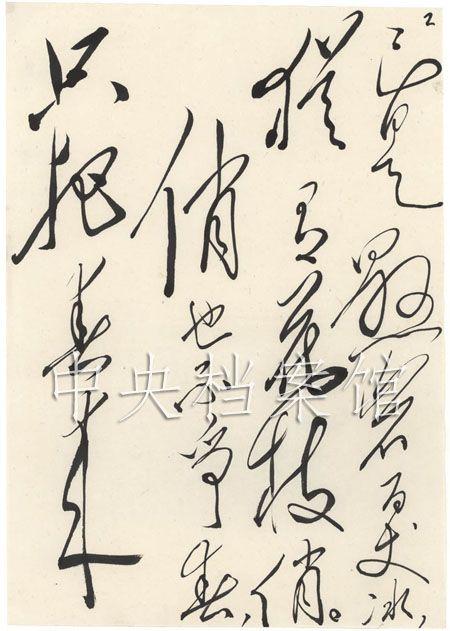 2
已是懸岩百丈冰,
猶有花枝俏。
俏也不爭春,
只把春来
中央档案馆